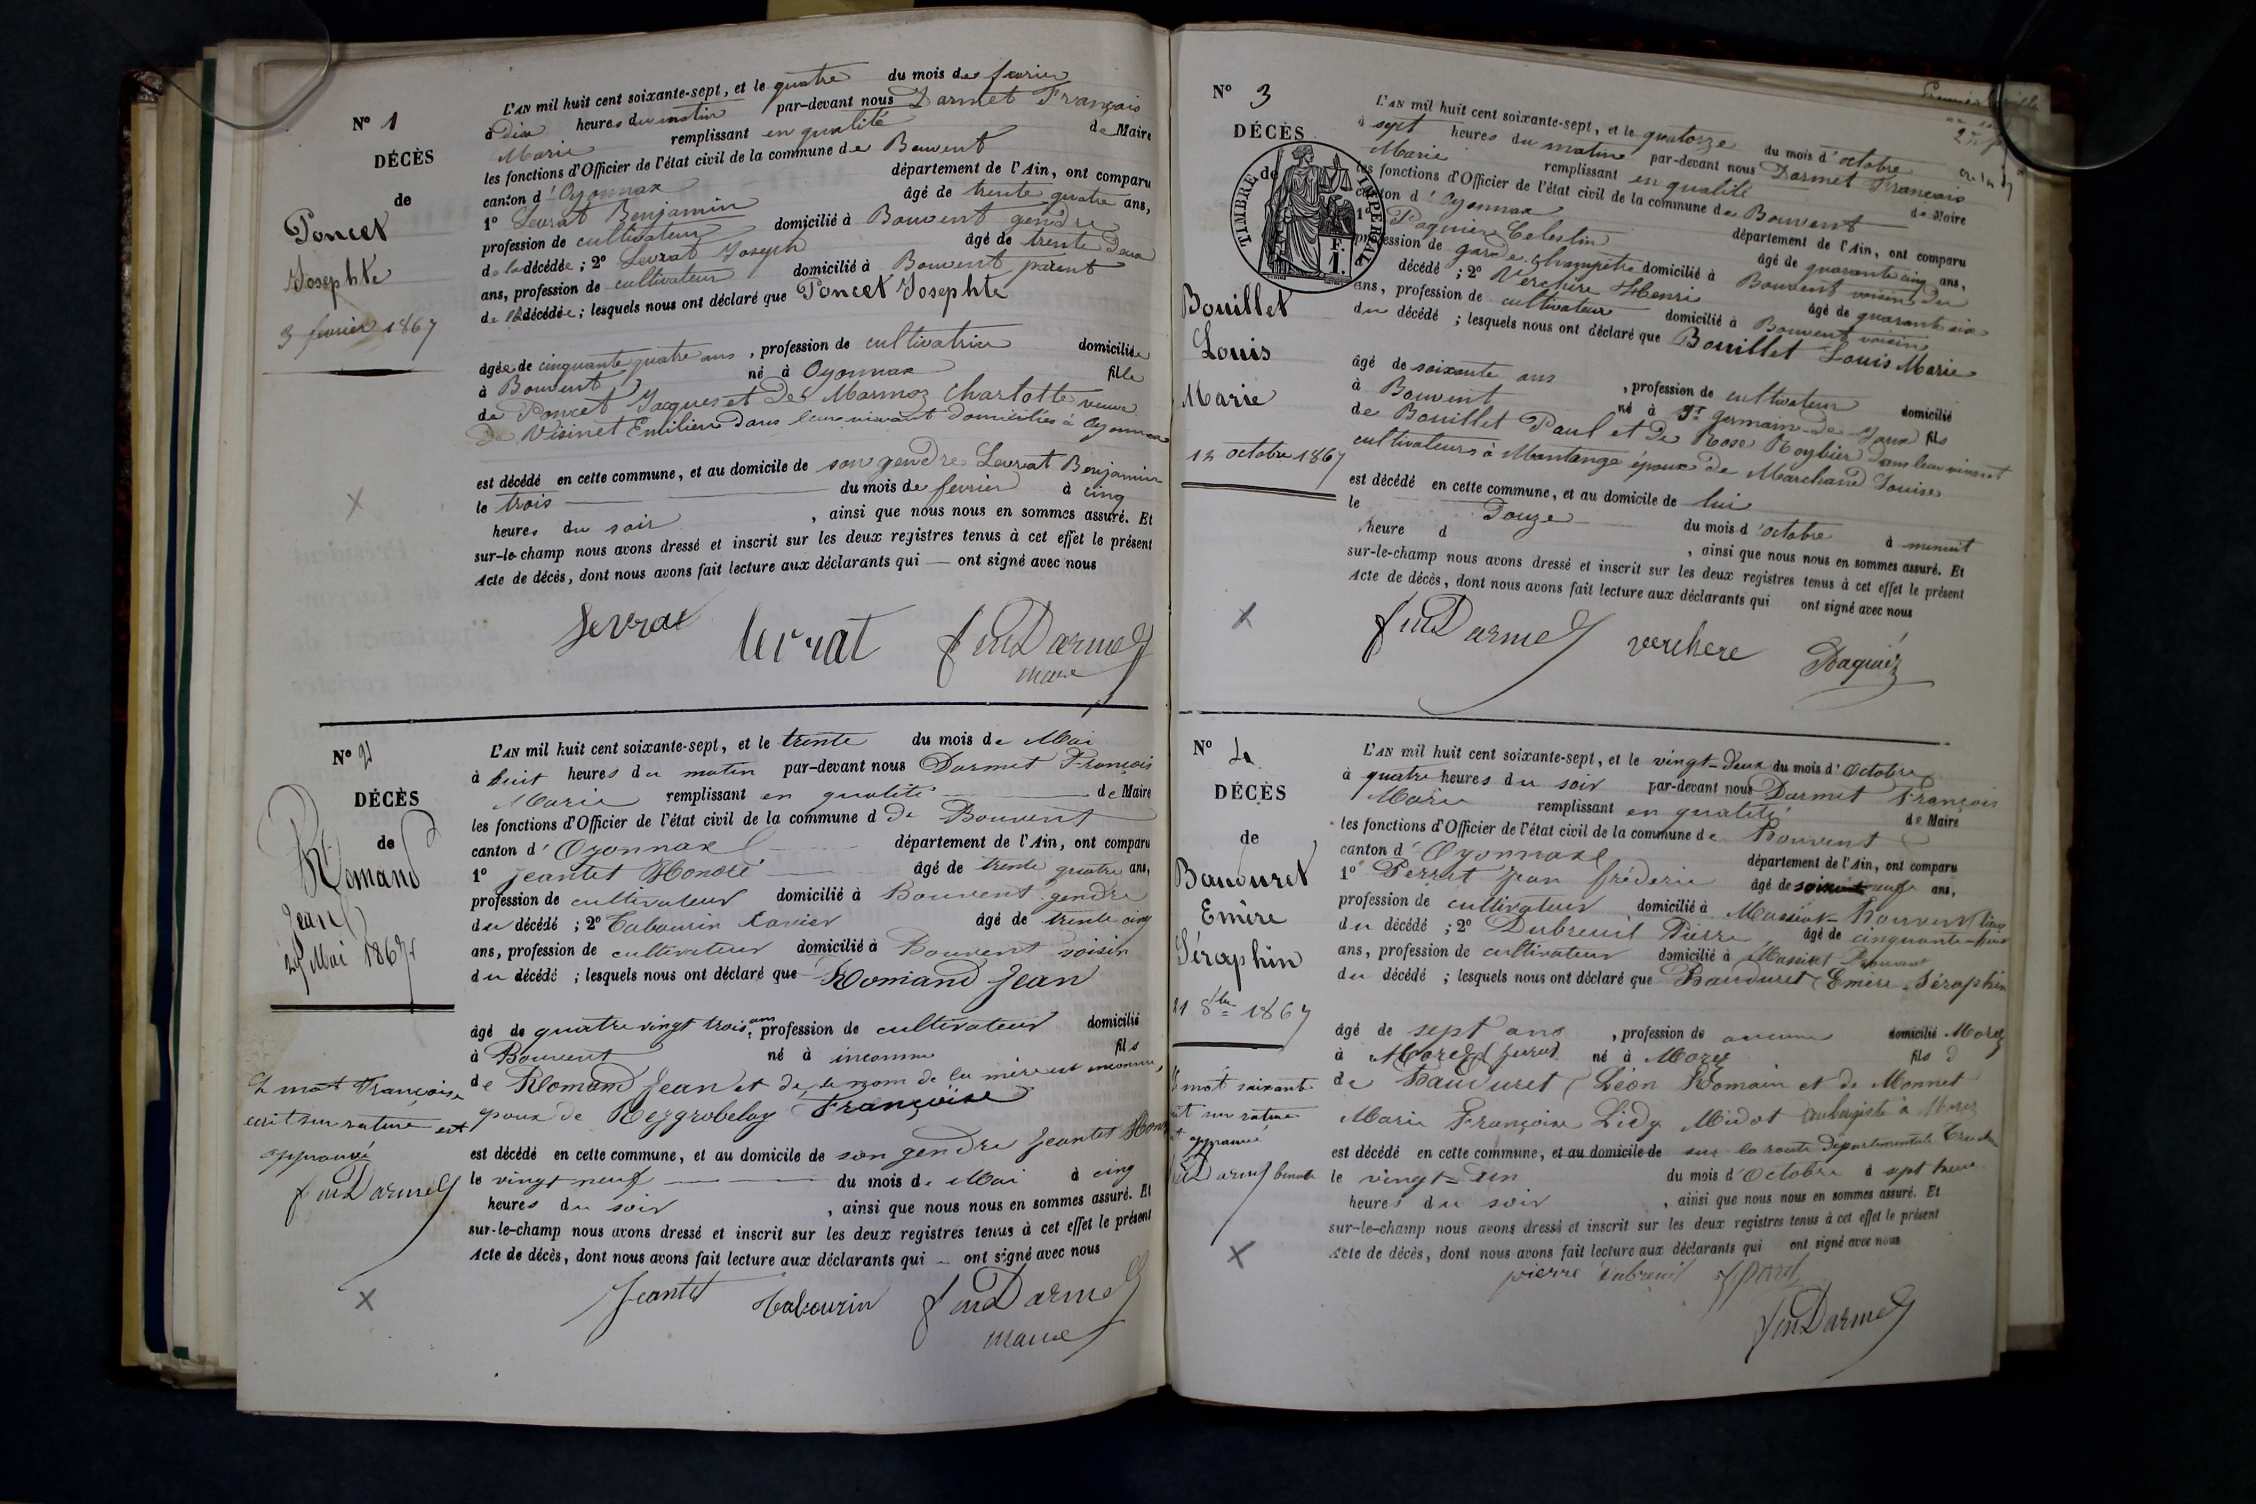 N° 1
DÉCÈS
de
Poncet
Josephte
3 fevrier 1867
L'AN mil huit cent soixante-sept, et le quatre du mois de fevrier
à dix heures du matin par-devant nous Darmet François
Marie remplissant en qualité de Maire
les fonctions d'Officier de l'état civil de la commune de Bouvent
canton d'Oyonnax département de l'Ain, ont comparu
1° Levrat Benjamin âgé de trente quatre ans,
profession de cultivateur domicilié à Bouvent gendre
de la décédée ; 2° Levrat Joseph âgé de trente deux
ans, profession de cultivateur domicilié à Bouvent parent
de la décédée ; lesquels nous ont déclaré que Poncet Josephte
âgée de cinquante quatre ans , profession de cultivatrice domiciliée
à Bouvent né à Oyonnax fille
de Poncet Jacques et de Marmoz Charlotte veuve
de Visinet Emilien dans leur vivant domiciliés à Oyonnax
est décédé en cette commune, et au domicile de son gendre Levrat Benjamin
le trois du mois de fevrier à cinq
heures du soir , ainsi que nous nous en sommes assuré. Et
sur-le-champ nous avons dressé et inscrit sur les deux registres tenus à cet effet le présent
Acte de décès, dont nous avons fait lecture aux déclarants qui — ont signé avec nous
Levrat levrat f m Darmet
maire
N° 2
DÉCÈS
de
Romand
Jean
29 Mai 1867
L'AN mil huit cent soixante-sept, et le trente du mois de Mai
à huit heures du matin par-devant nous Darmet François
Marie remplissant en qualité de Maire
les fonctions d'Officier de l'état civil de la commune d de Bouvent
canton d'Oyonnax département de l'Ain, ont comparu
1° Jeantet Honoré âgé de trente quatre ans,
profession de cultivateur domicilié à Bouvent gendre
du décédé ; 2° Tabourin Xavier âgé de trente cinq
ans, profession de cultivateur domicilié à Bouvent voisin
du décédé ; lesquels nous ont déclaré que Romand Jean
âgé de quatre vingt trois ans, profession de cultivateur domicilié
à Bouvent né à inconnu fils
de Romand Jean et de le nom de la mère est inconnu,
époux de Reygrobellay Françoise
est décédé en cette commune, et au domicile de son gendre Jeantet Honoré
le vingt neuf du mois de Mai à cinq
heures du soir , ainsi que nous nous en sommes assuré. Et
sur-le-champ nous avons dressé et inscrit sur les deux registres tenus à cet effet le présent
Acte de décès, dont nous avons fait lecture aux déclarants qui — ont signé avec nous
Le mot Françoise
écrit sur rature est
approuvé
f m Darmet
Jeantet Tabourin f m Darmet
maire
N° 3
DÉCÈS
de
TIMBRE IMPÉRIAL
Bouillet
Louis
Marie
12 octobre 1867
L'AN mil huit cent soixante-sept, et le quatorze du mois d'octobre
à sept heures du matin par-devant nous Darmet François
Marie remplissant en qualité de Maire
les fonctions d'Officier de l'état civil de la commune de Bouvent
canton d'Oyonnax département de l'Ain, ont comparu
1° Paquiez Celestin âgé de quarante cinq ans,
profession de garde champêtre domicilié à Bouvent voisin du
décédé ; 2° Verchere Henri âgé de quarante six
ans, profession de cultivateur domicilié à Bouvent voisin
du décédé ; lesquels nous ont déclaré que Bouillet Louis Marie
âgé de soixante ans , profession de cultivateur domicilié
à Bouvent né à St germain de Joux fils
de Bouillet Paul et de Rose Roybier dans leur vivant
cultivateurs à Montange époux de Marchand Louise
est décédé en cette commune, et au domicile de lui
le Douze du mois d'octobre à minuit
heure d , ainsi que nous nous en sommes assuré. Et
sur-le-champ nous avons dressé et inscrit sur les deux registres tenus à cet effet le présent
Acte de décès, dont nous avons fait lecture aux déclarants qui ont signé avec nous
f m Darmet verchere Paquiez
N° 4
DÉCÈS
de
Bauduret
Emire
Séraphin
21 8bre 1867
L'AN mil huit cent soixante-sept, et le vingt-deux du mois d'Octobre
à quatre heures du soir par-devant nous Darmet François
Marie remplissant en qualité de Maire
les fonctions d'Officier de l'état civil de la commune de Bouvent
canton d'Oyonnax département de l'Ain, ont comparu
1° Perret Jean fréderic âgé de soixante neuf ans,
profession de cultivateur domicilié à Massiat Bouvent
du décédé ; 2° Dubreuil Pierre âgé de cinquante
ans, profession de cultivateur domicilié à Massiat Bouvent
du décédé ; lesquels nous ont déclaré que Bauduret Emire Séraphin
âgé de sept ans , profession de aucune domicilié Morez
à Morez Jura né à Morez fils d
de Bauduret Léon Romain et de Monnet
Marie Françoise Lidy Midot aubergiste à Morez
est décédé en cette commune, et au domicile de sur la route départementale
le vingt-un du mois d'Octobre à sept heures
heures du soir , ainsi que nous nous en sommes assuré. Et
sur-le-champ nous avons dressé et inscrit sur les deux registres tenus à cet effet le présent
Acte de décès, dont nous avons fait lecture aux déclarants qui ont signé avec nous
mot soixante
sur rature
approuvé
Darmet
pierre dubreuil
f m Darmet